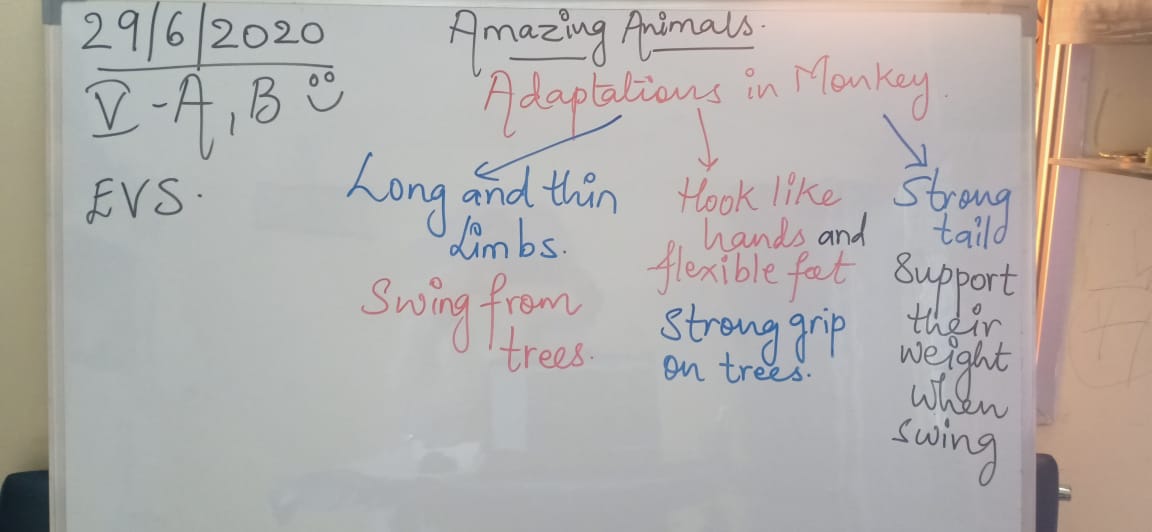 29/6/2020
V-A, B
EVS.
Amazing Animals.
Adaptations in Monkey.
Long and thin
Limbs.
Swing from
trees.
Hook like
hands and
flexible feet
Strong grip
on trees.
Strong
taild
Support
their
weight
when
swing